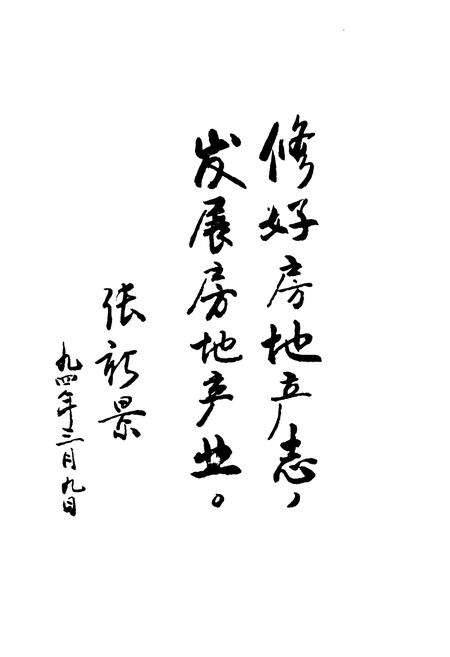 修好房地产志，
发展房地产业。
张新景
九四年三月九日